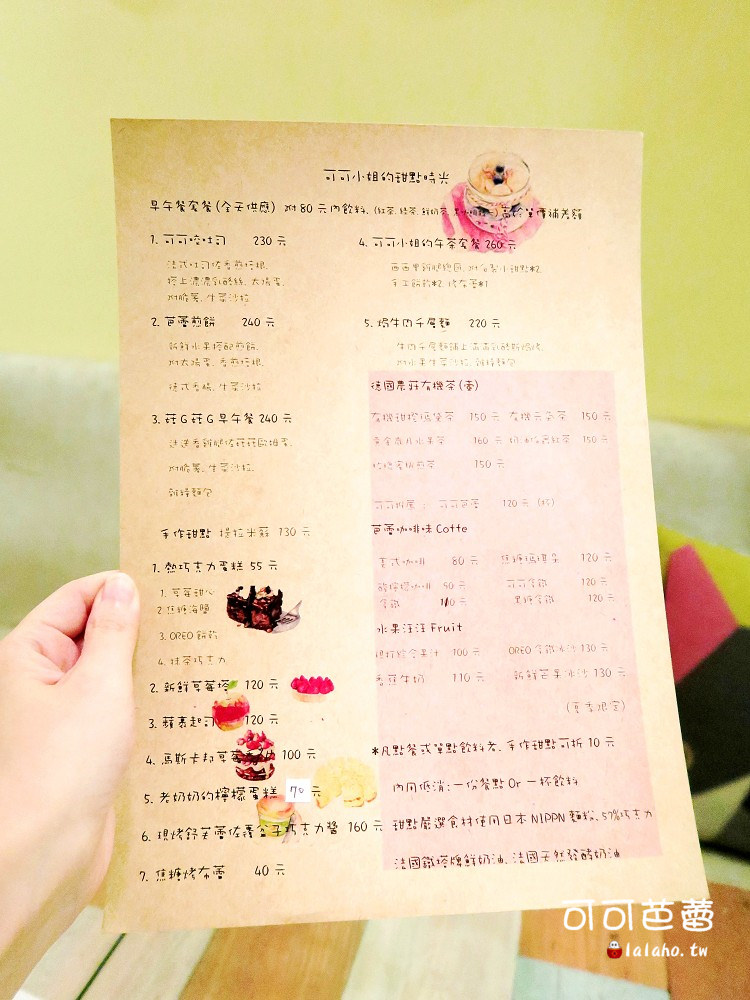 可可小姐的甜點時光
早午餐套餐(全天供應) 附80元內飲料、(紅茶.綠茶.鮮奶茶.) 高於單價補差額
1. 可可吐司 230 元
法式吐司佐香煎培根、
搭上濃濃乳酪絲、太陽蛋、
附脆薯、生菜沙拉
2. 芭蕾煎餅 240 元
新鮮水果搭配煎餅、
附太陽蛋、香煎培根、
德式香腸、生菜沙拉
3. 菇G菇G早午餐 240 元
迷迭香雞腿佐菇菇歐姆蛋、
附脆薯、生菜沙拉、
雜糧麵包
手作甜點 提拉米蘇 130 元
1. 熱巧克力蛋糕 55 元
1. 草莓甜心
2. 焦糖海鹽
3. OREO 餅乾
4. 抹茶巧克力
2. 新鮮草莓塔 120 元
3. 蘋果起司 120 元
4. 馬斯卡邦草莓 100 元
5. 老奶奶的檸檬蛋糕 70 元
6. 現烤舒芙蕾佐覆盆子巧克力醬 160 元
7. 焦糖烤布蕾 40 元
4. 可可小姐的午茶套餐 260 元
手工餅乾*2、烤布蕾*1
5. 焗牛肉千層麵 220 元
牛肉千層麵鋪上濃濃乳酪絲焗烤、
附水果生菜沙拉、雜糧麵包
德國農莊有機茶(壺)
有機甜橙瑪黛茶 150 元 有機元氣茶 150 元
黃金歲月水果茶 160 元 150 元
蜜桃煎茶 150 元
可可芭蕾 120 元 (杯)
芭蕾咖啡味 Cotte
美式咖啡 80 元 焦糖瑪琪朵 120 元
咖啡 50 元 可可拿鐵 120 元
拿鐵 110 元 黑糖拿鐵 120 元
水果汪汪 Fruit
現打綜合果汁 100 元 OREO 拿鐵冰沙 130 元
香蕉牛奶 110 元 新鮮芒果冰沙 130 元
(夏季限定)
*凡點餐或單點飲料者、手作甜點可折 10 元
內用低消:一份餐點 Or 一杯飲料
甜點嚴選食材使用日本 NIPPN 麵粉、57%巧克力
法國鐵塔牌鮮奶油、法國天然發酵奶油
可可芭蕾
lalaho.tw